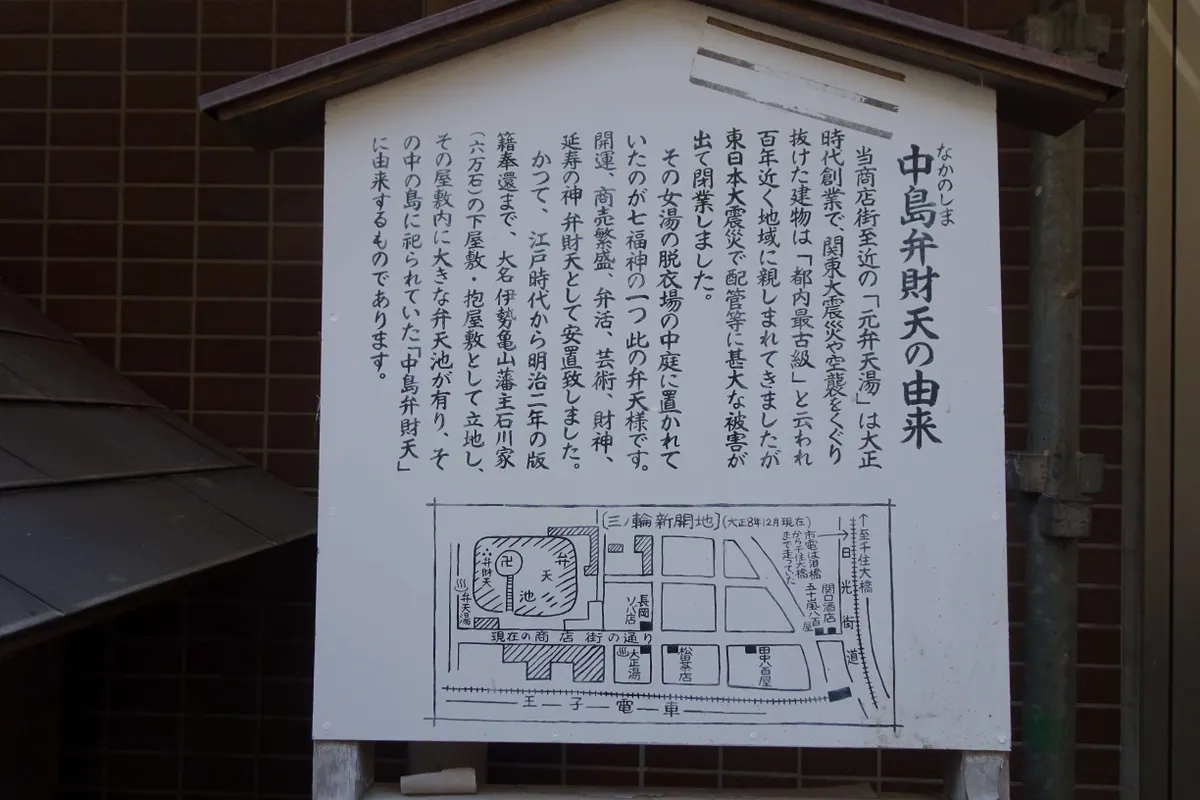 なかのしま
中島弁財天の由来
当商店街至近の「元弁天湯」は大正
時代創業で、関東大震災や空襲をくぐり
抜けた建物は「都内最古級」と云われ
百年近く地域に親しまれてきましたが
東日本大震災で配管等に甚大な被害が
出て閉業しました。
その女湯の脱衣場の中庭に置かれて
いたのが七福神の一つ此の弁天様です。
開運、商売繁盛、弁活、芸術、財神、
延寿の神 弁財天として安置致しました。
かつて、江戸時代から明治二年の版
籍奉還まで、大名 伊勢亀山藩主石川家
(六万石)の下屋敷・抱屋敷として立地し、
その屋敷内に大きな弁天池が有り、そ
の中の島に祀られていた「中島弁財天」
に由来するものであります。
[三ノ輪新開地](大正8年12月現在)
↑至千住大橋
日光街道
市電は泪橋
から千住大橋
まで走っていた
関口酒店
五十嵐八百屋
弁天池
卍
弁財天
弁天湯
長岡
ソバ店
現在の商店街の通り
大正湯
松里茶店
田中八百屋
王子電車